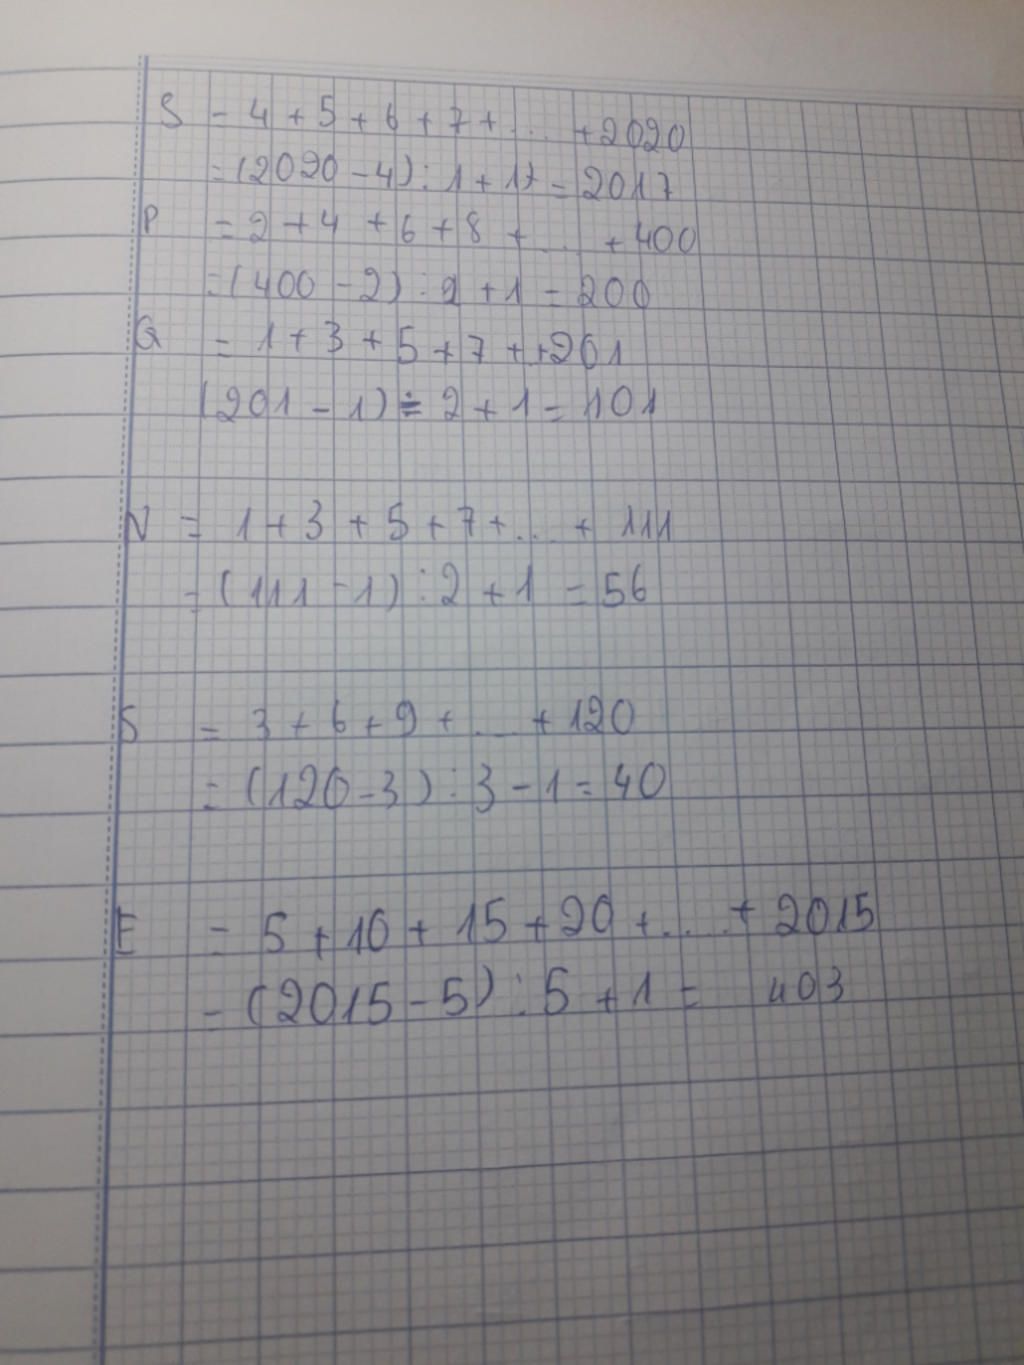 S = 4 + 5 + 6 + 7 + ... + 2020
= (2020 - 4) : 1 + 1) = 2017
P = 2 + 4 + 6 + 8 + ... + 400
= (400 - 2) : 2 + 1 = 200
Q = 1 + 3 + 5 + 7 + ..+201
(201 - 1) : 2 + 1 = 101
N = 1 + 3 + 5 + 7 + ... + 111
= (111 - 1) : 2 + 1 = 56
S = 3 + 6 + 9 + ... + 120
= (120 - 3) : 3 - 1 = 40
E = 5 + 10 + 15 + 20 + .... + 2015
= (2015 - 5) : 5 + 1 = 403